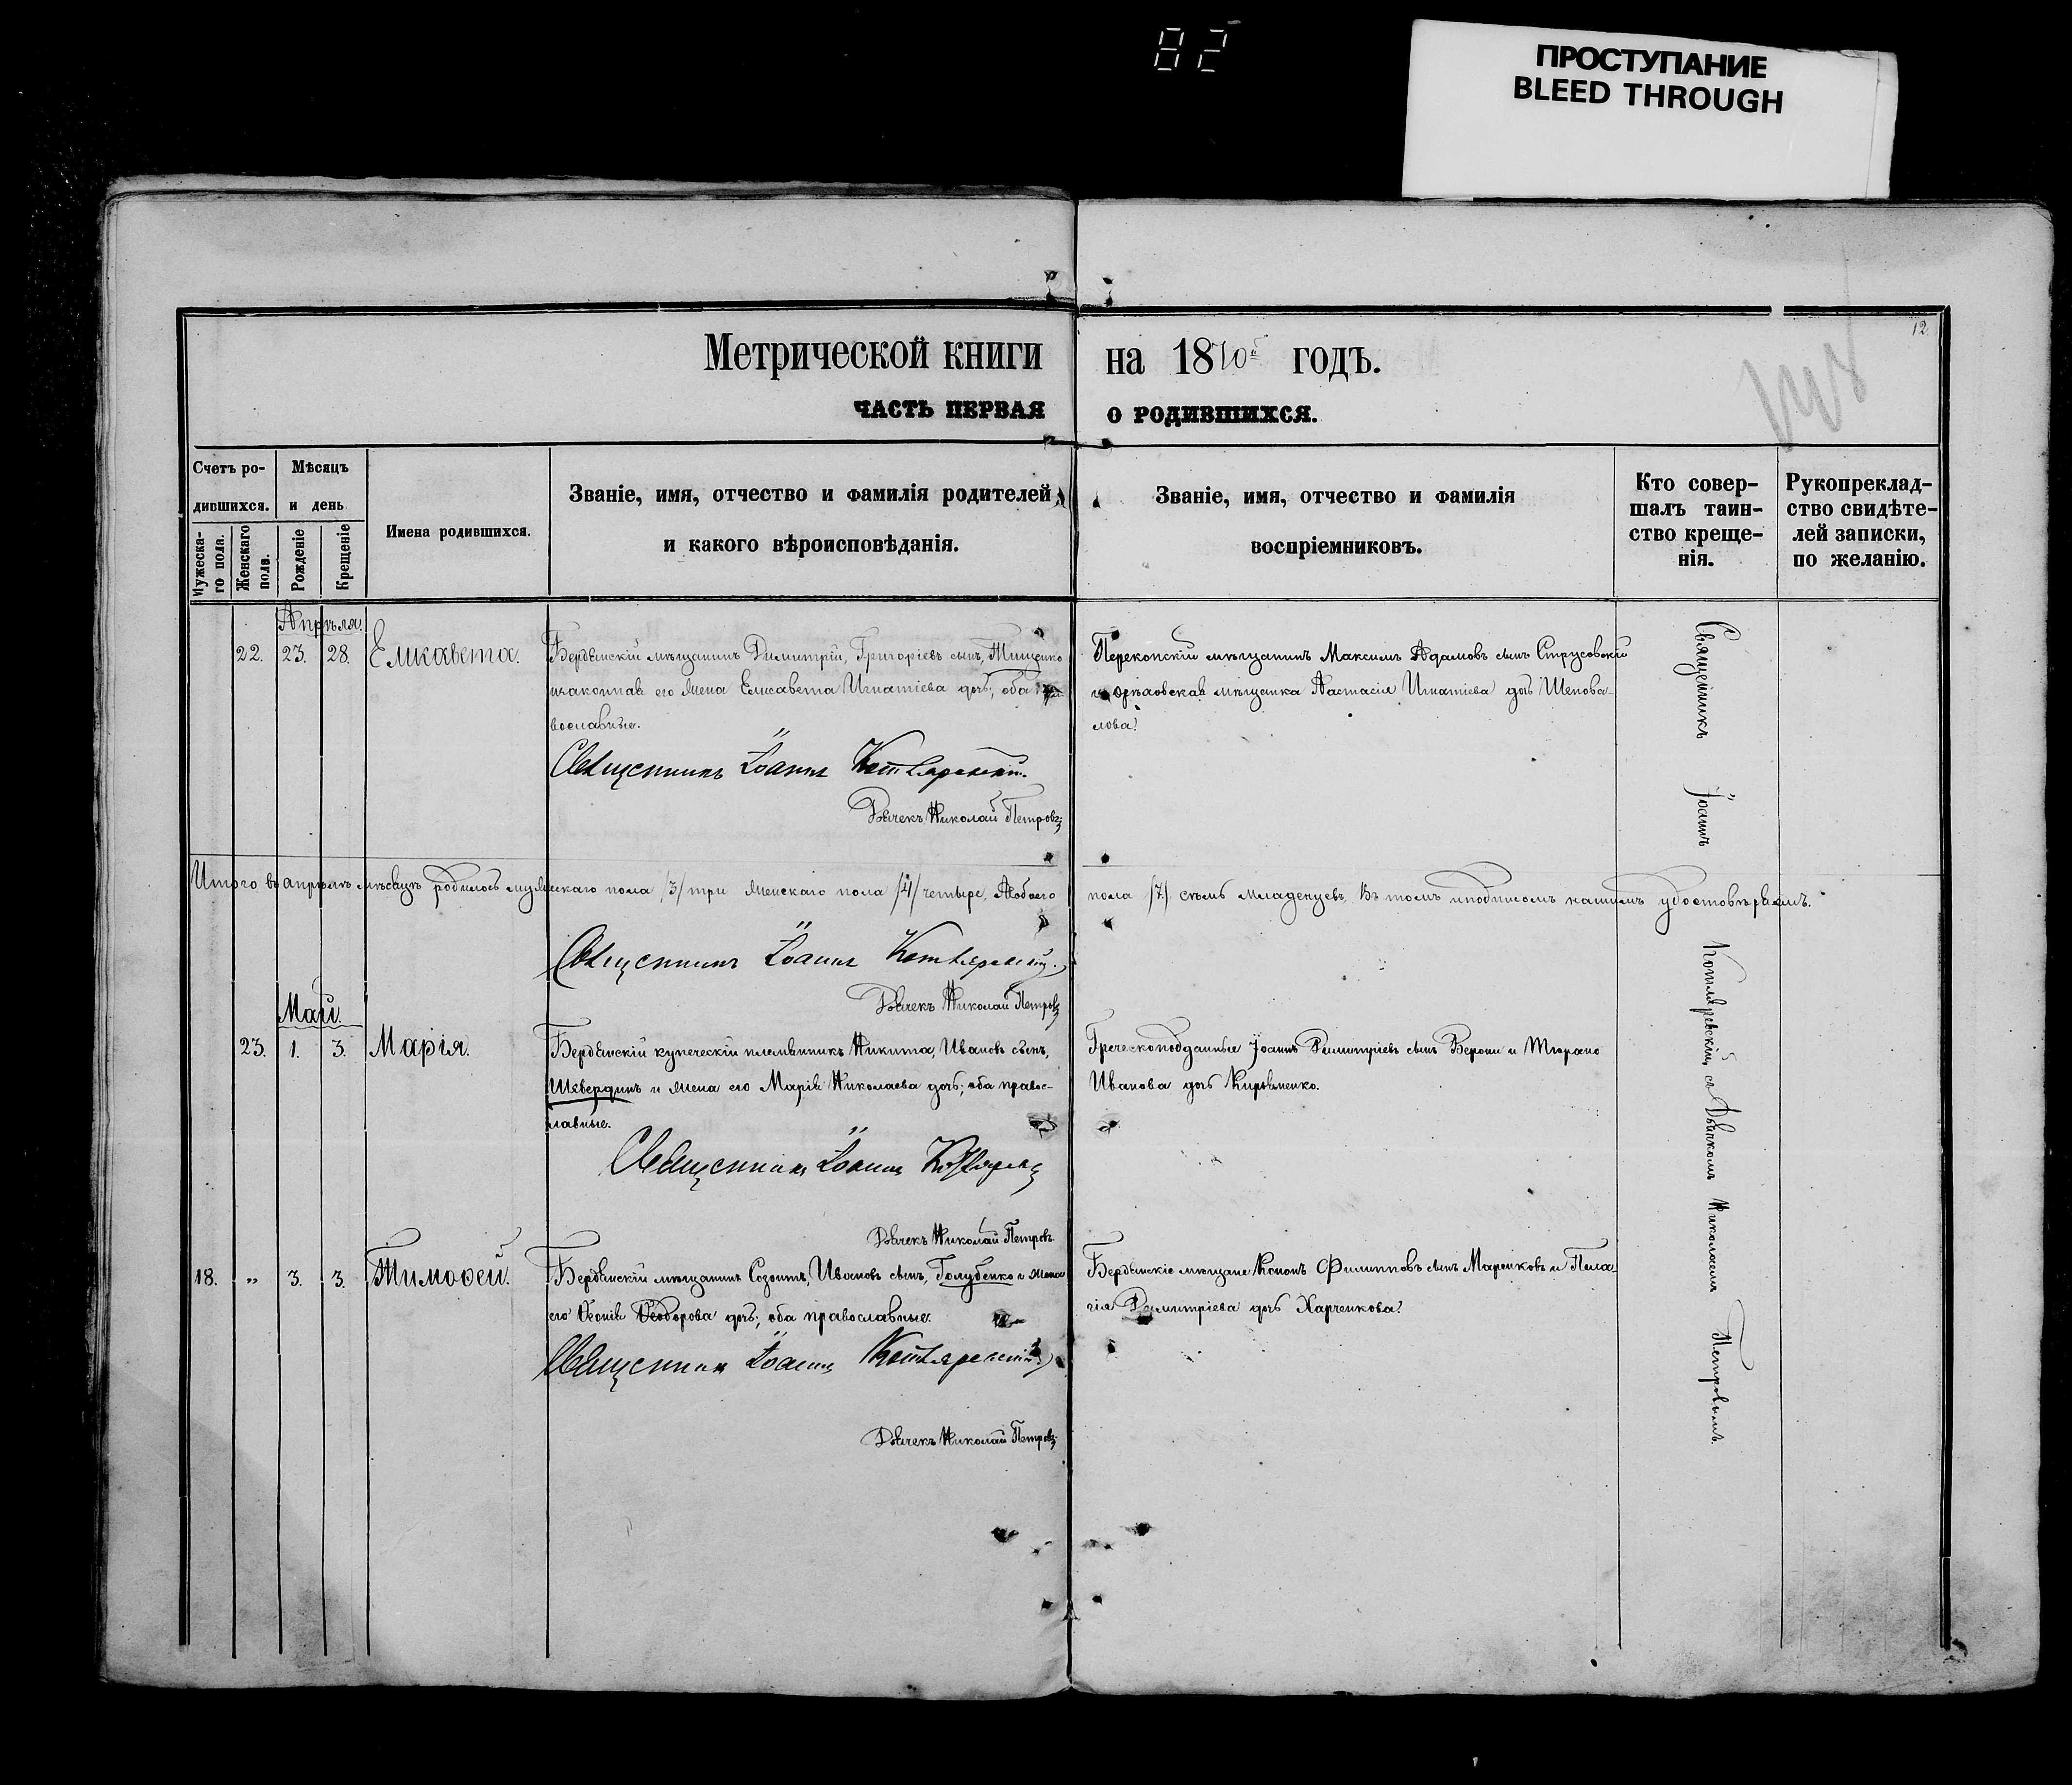 82
ПРОСТУПАНИЕ
BLEED THROUGH
12
Метрической книги на 1870й годъ.
ЧАСТЬ ПЕРВАЯ О РОДИВШИХСЯ.
Счетъ ро-
дившихся.
Мужеска-
го пола.
Женскаго
пола.
Мѣсяцъ
и день
Рожденіе
Крещеніе
Имена родившихся.
Званіе, имя, отчество и фамилія родителей,
и какого вѣроисповѣданія.
Званіе, имя, отчество и фамилія
воспріемниковъ.
Кто совер-
шалъ таин-
ство креще-
нія.
Рукоприклад-
ство свидѣте-
лей записки,
по желанію.
Апрѣля.
22. 23. 28. Елисавета.
Бердянскій мѣщанинъ Димитрій, Григоріевъ сынъ, Тищенко
и законная его жена Елисавета Игнатіева дочь; оба пра-
вославные.
Священникъ Іоаннъ Котляревскій.
Дьячекъ Николай Петровъ
Перекопскій мѣщанинъ Максимъ Адамовъ сынъ Струсовскій
и орѣховская мѣщанка Настасія Игнатіева дочь Шепова-
лова.
Итого въ апрѣлѣ мѣсяцѣ родилось мужескаго пола /3/ три женскаго пола /4/ четыре, А обоего пола /7/ семь младенцевъ. Въ томъ и подписомъ нашимъ удостовѣряемъ.
Священникъ Іоаннъ Котляревскій.
Дьячекъ Николай Петровъ
Май.
23. 1. 3. Марія.
Бердянскій купеческій племянникъ Никита, Ивановъ сынъ,
Шквердинъ и жена его Марія Николаева дочь; оба право-
славные.
Священникъ Іоаннъ Котляревскій
Дьячекъ Николай Петровъ
Греческоподданные Іоаннъ Димитріевъ сынъ Верони и
Иванова дочь
18. „ 3. 3. Тимоѳей.
Бердянскій мѣщанинъ Созонтъ, Ивановъ сынъ, Голубенко и жена
его Ѳеодорова дочь; оба православные.
Священникъ Іоаннъ Котляревскій
Дьячекъ Николай Петровъ
Бердянскіе мѣщане Кононъ Филипповъ сынъ Маренковъ и Пела-
гія Димитріева дочь Харченкова.
Священникъ Іоаннъ Котляревскій, съ Дьячкомъ Николаемъ Петровымъ.